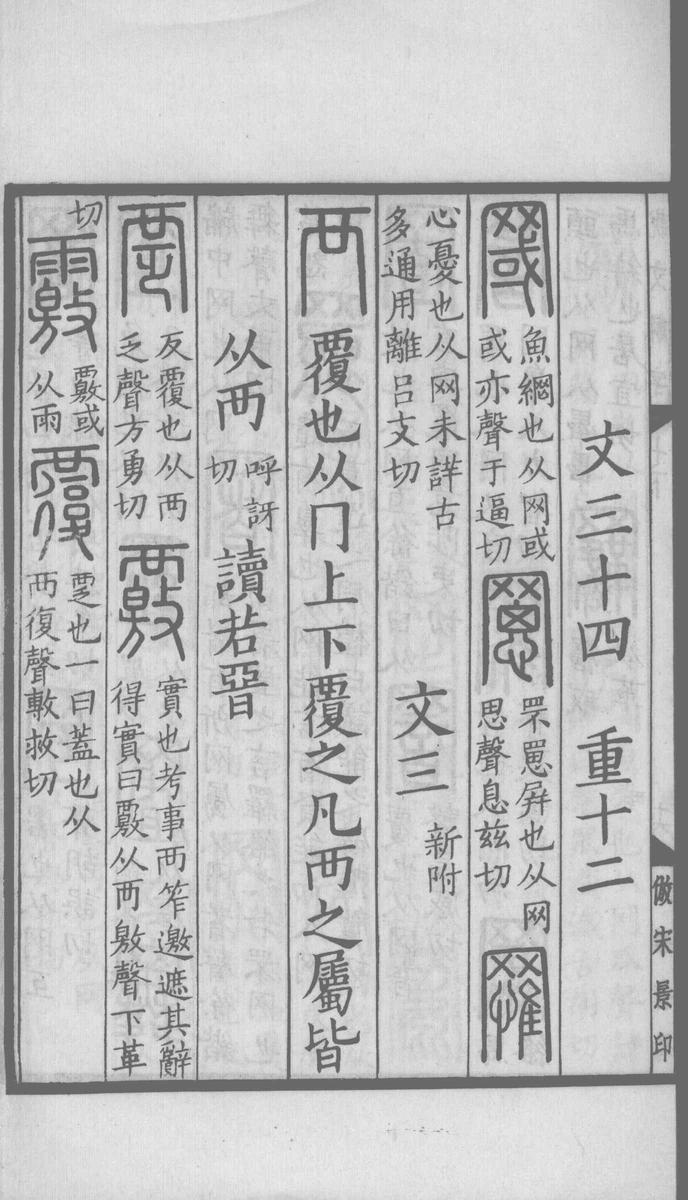 文三十四 重十二
罭 魚網也从网或
或亦聲于逼切 罳 罘罳屏也从网
思聲息茲切 罹
心憂也从网未詳古
多通用離呂支切 文三 新附
襾 覆也从冂上下覆之凡襾之屬皆
从襾 呼訝
切 讀若晉
覂 反覆也从襾
乏聲方勇切 覈 實也考事襾笮邀遮其辭
得實曰覈从襾敫聲下革
切 䨣 覈或
从雨 覆 覂也一曰蓋也从
襾復聲敷救切
倣宋景印